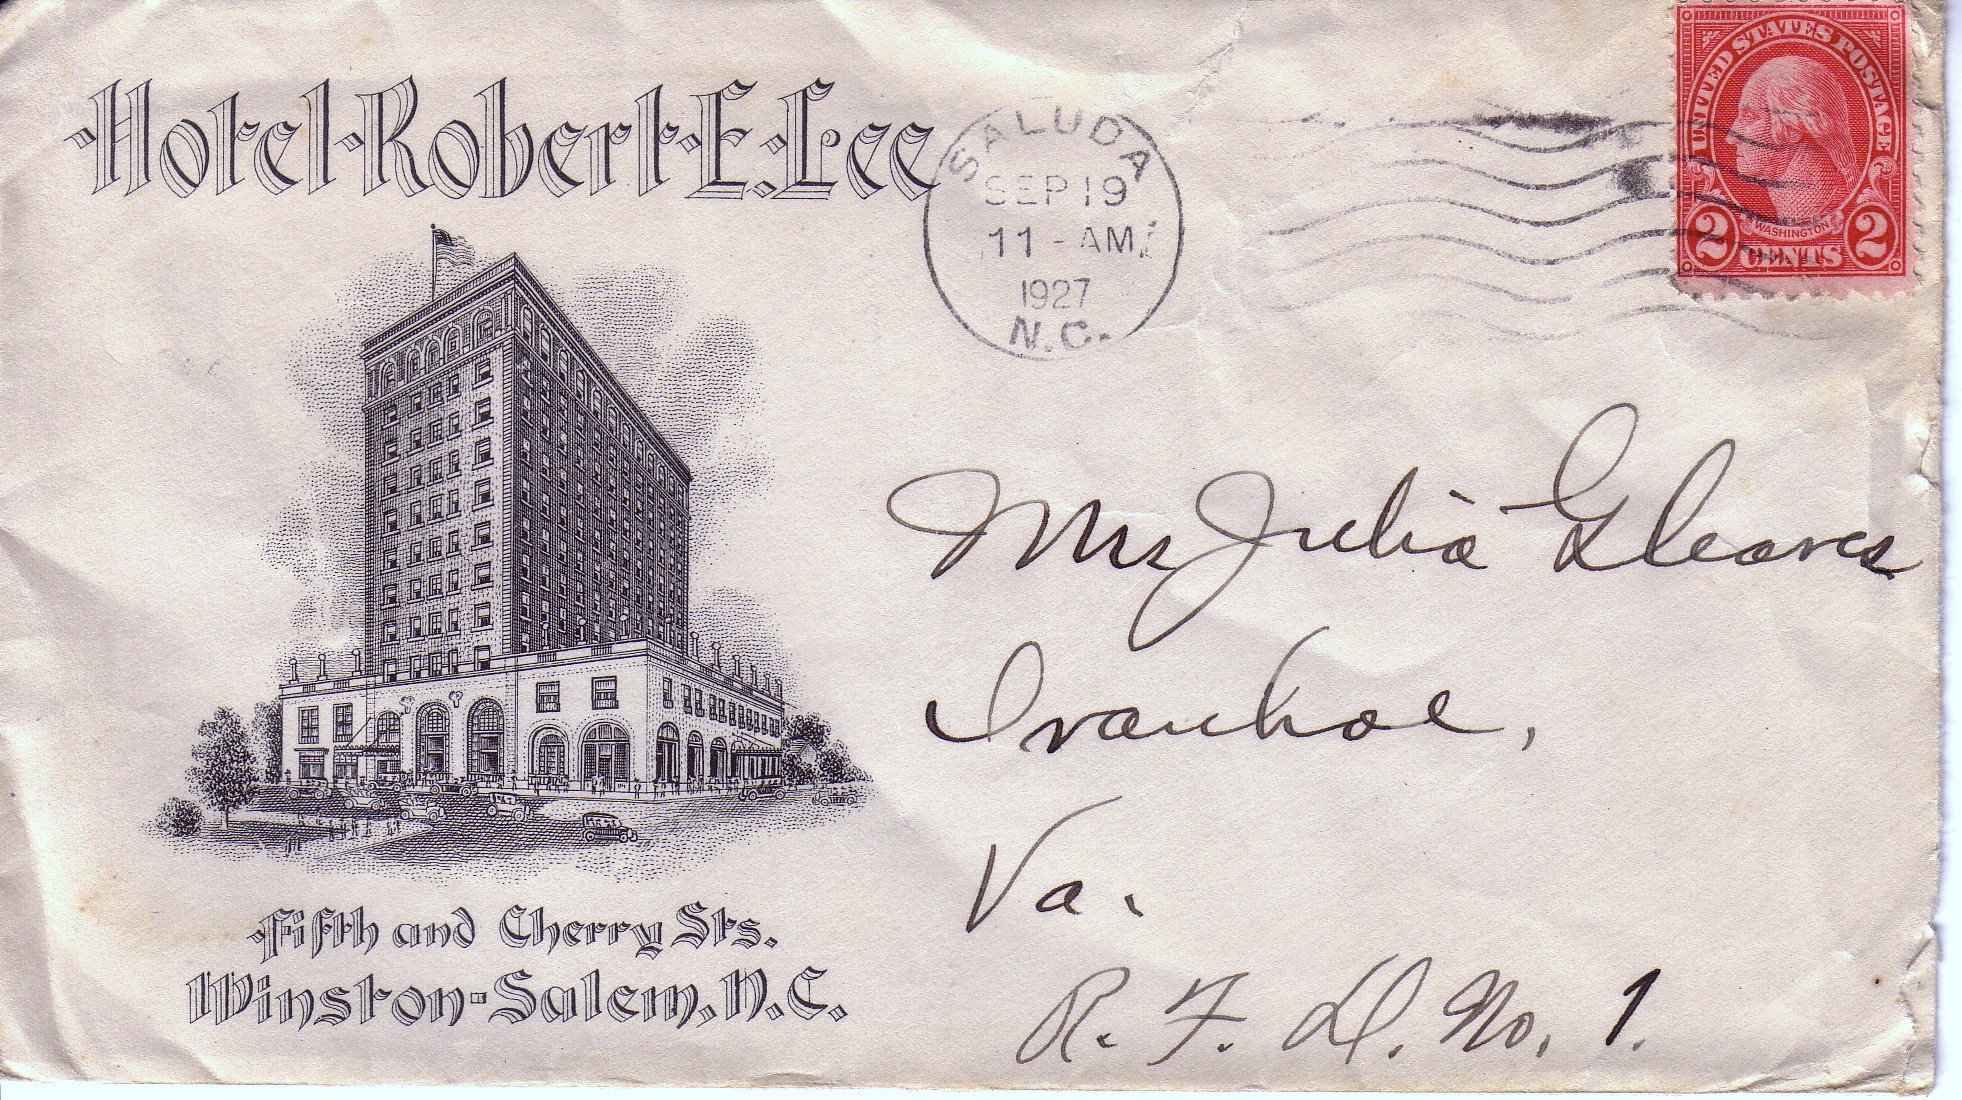 Hotel Robert E. Lee
SALUDA
SEP 19
11 - AM
1927
N.C.
UNITED STATES POSTAGE
WASHINGTON
2 CENTS 2
Mrs Julia Gleaves
Ivanhoe,
Va.
R. F. D. No. 1.
Fifth and Cherry Sts.
Winston-Salem, N.C.